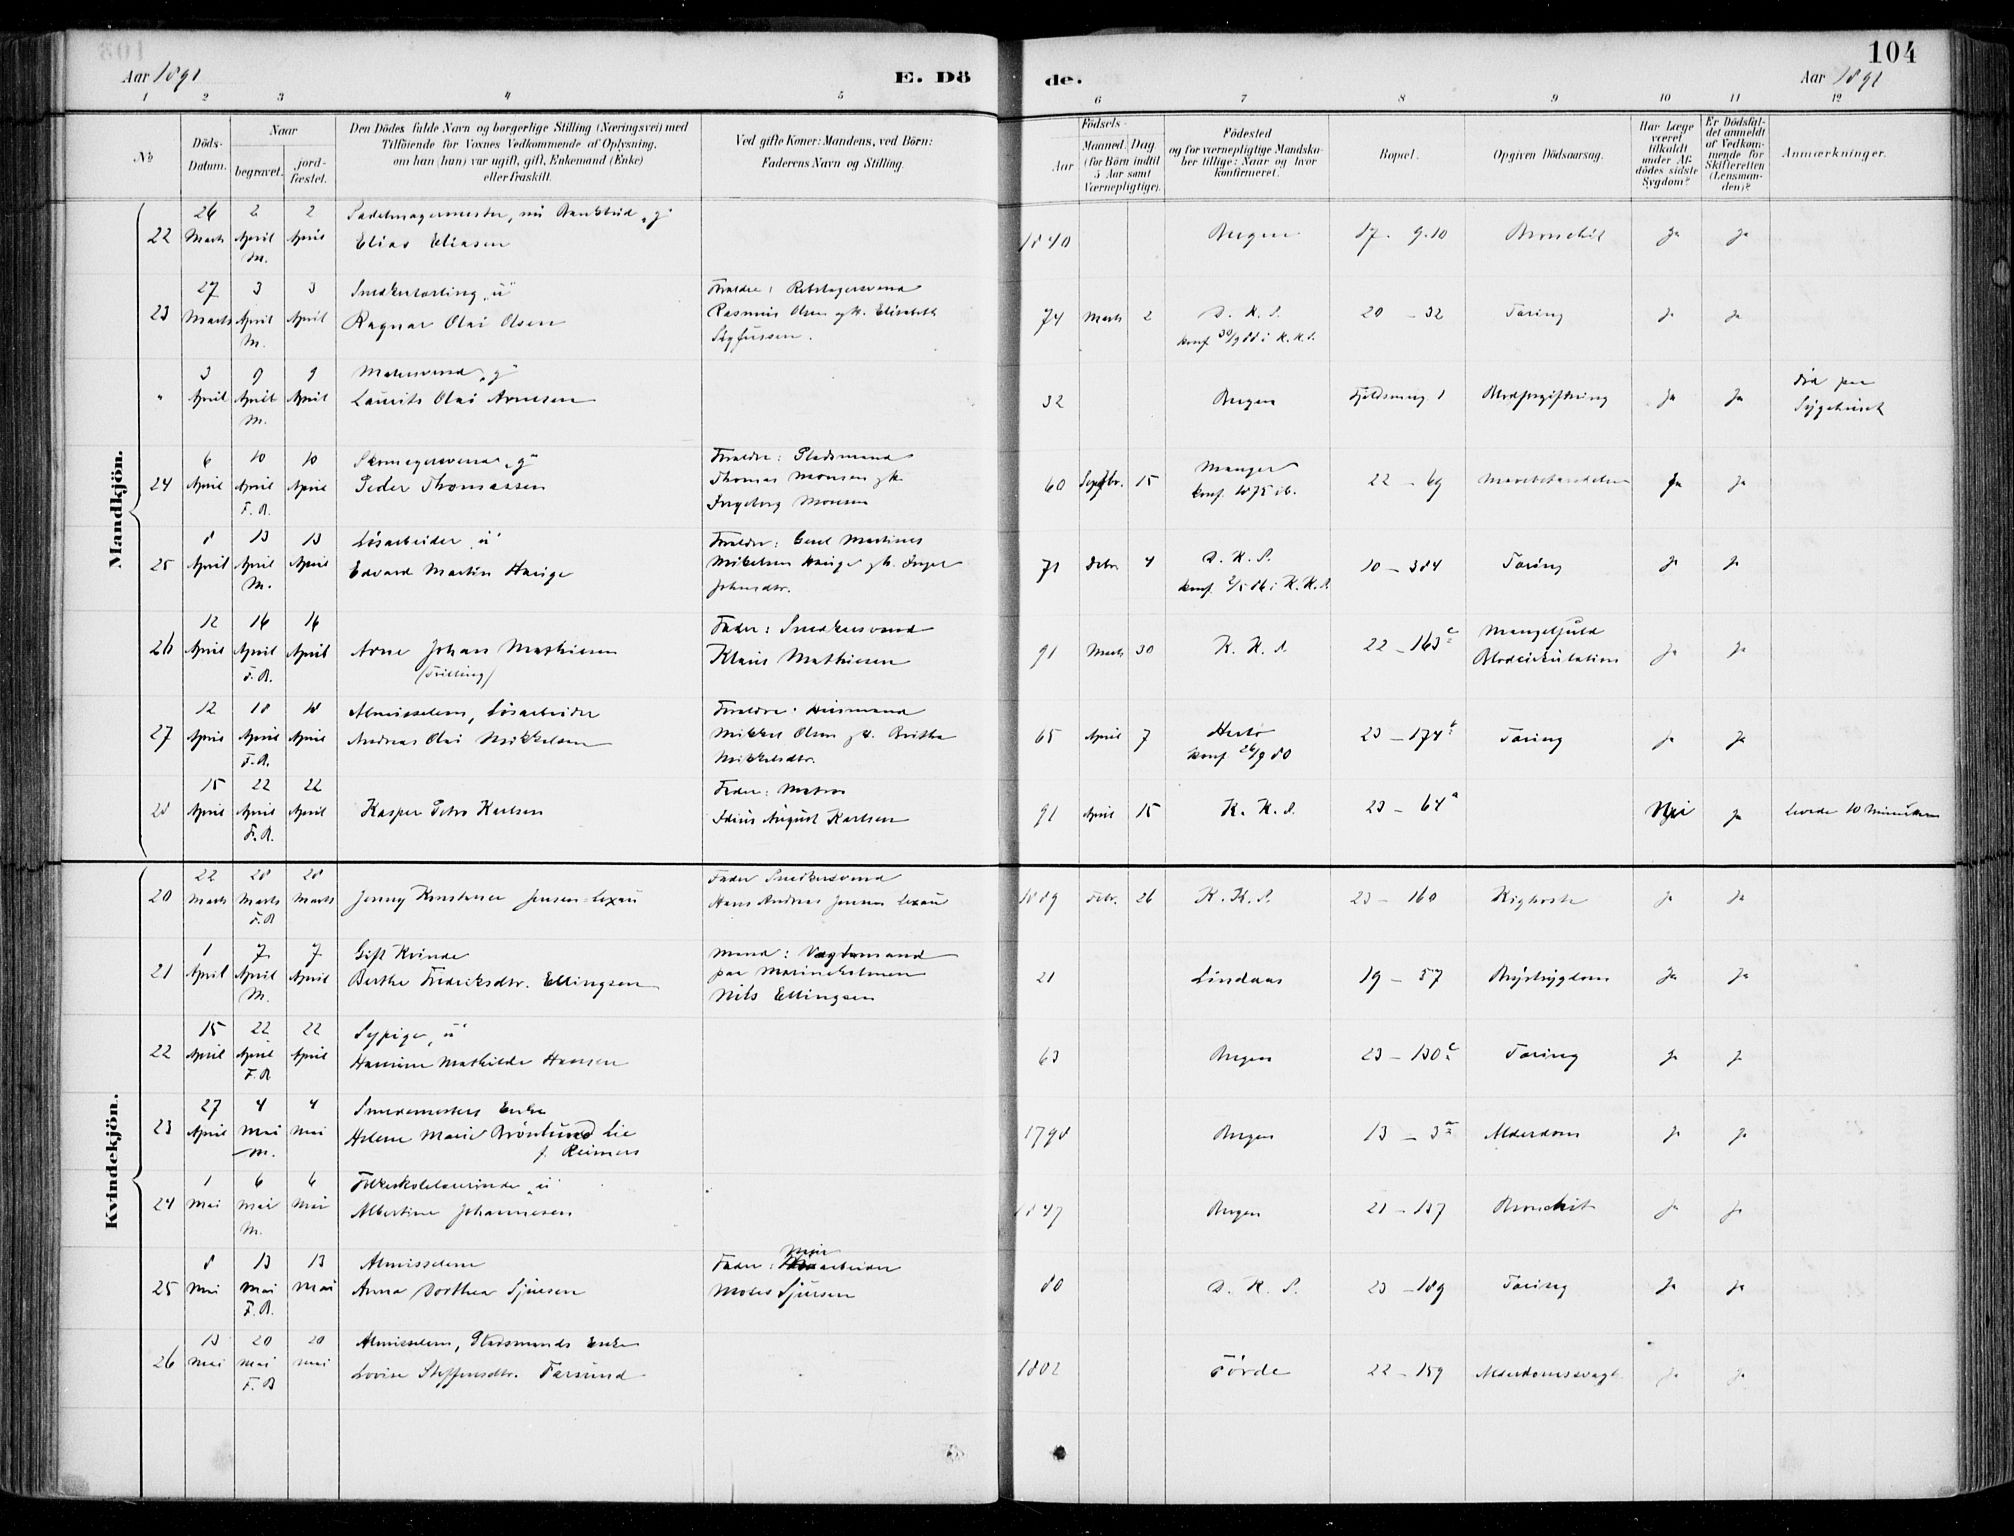 104
Aar 1891
E. Dö
de.
Aar 1891
1 2 3 4 5 6 7 8 9 10 11 12
No
Döds-
Datum.
Naar
begravet.
jord-
fæstet.
Den Dödes fulde Navn og borgerlige Stilling (Næringsvei) med
Tilföiende for Voxnes Vedkommende af Oplysning,
om han (hun) var ugift, gift, Enkemand (Enke)
eller fraskilt.
Ved gifte Koner: Mandens, ved Börn:
Faderens Navn og Stilling.
Födsels-
Aar
Maaned. Dag
(for Börn indtil
5 Aar samt
Værnepligtige).
Födested
og for værnepligtige Mandska-
ber tillige: Naar og hvor
konfirmeret.
Bopæl.
Opgiven Dödsaarsag.
Har Læge
været
tilkaldt
under Af-
dödes sidste
Sygdom?
Er Dödsfal-
det anmeldt
af Vedkom-
mende for
Skifteretten
(Lensman-
den)?
Anmærkninger.
Mandkjön.
26 2 2 Sadelmagermester, nu Bankbud „g"
22 Marts April April Elias Eliasen 1840 Bergen 17. 9.10 Bronchit Ja Ja
M.
27 3 3 Snedkerlærling „u" Forældre: Rebslagersvend
23 Marts April April Ragnar Olai Olsen Rasmus Olsen og H. Elisabeth 74 Marts 2 D. K. S. 20 - 32 Tæring Ja Ja
M. Sigfussen. konf. 30/9 88 i K. K. S.
3 9 9 Malersvend „g"
" April April April Laurits Olai Arnesen 32 Bergen Fjeldsmug 1 Blodforgiftning Ja Ja Död paa
M. Sygehuset
6 10 10 Skomagersvend „g" Forældre: Pladsmand
24 April April April Peder Thomassen Thomas Monsen og H. 60 Septbr. 15 Manger 22 - 69 Ja Ja
F.A. Ingeborg Monsen konf. 1875 ib.
8 13 13 Lösarbeider „u"
25 April April April Edvard Martin Hauge Mikelsen Hauge og H. Inger 71 Debr. 4 D. K. S. 10 - 384 Tæring Ja Ja
M. Johnsdtr.
12 16 16 Fader: Snedkersvend
26 April April April Arne Johan Mathiesen Klaus Mathiesen 91 Marts 30 K. K. S. 22 - 163 c Mangelfuld Ja Ja
F.A. (Trilling) Blodcirkulation
12 18 18 Almisselem, Lösarbeider Forældre: Huusmand
27 April April April Andreas Olai Mikkelsen Mikkel Olsen og H. Britha 65 April 7 Herlö 23 - 174 b Tæring Ja Ja
F.A. Mikkelsdtr. konf. 26/9 80
15 22 22 Fader: Matros
28 April April April Kasper Petro Karlsen Idius August Karlsen 91 April 15 K. K. S. 23 - 64 a Nei Ja Levede 10 Minutter
F.A.
Kvindekjön.
22 28 28 Fader Snedkersvend
20 Marts Marts Marts Jenny Konstanse Jensen-Lexau Hans Andreas Jensen Lexau 1889 Febr. 26 K. K. S. 23 - 160 Kighoste Ja Ja
F.A
1 7 7 Gift Kvinde Mand: Vagtmand
21 April April April Berthe Fredriksdtr. Ellingsen paa Marineholmen 21 Lindaas 19 - 57 Brystsygdom Ja Ja
M. Nils Ellingsen
15 22 22 Sypige „u"
22 April April April Hansine Mathilde Hansen 63 Bergen 23 - 130 c Tæring Ja Ja
F.A
27 4 4 Smedemesters Enke
23 April Mai Mai Helene Marie Brönlund Lie 1798 Bergen 13 - 3 a Alderdom Ja Ja
M. f. Reimers
1 6 6 Folkeskolelærerinde „u"
24 Mai Mai Mai Albertine Johannesen 1847 Bergen 21 - 137 Bronchit Ja Ja
M.
8 13 13 Almisselem Fader: Murarbeider
25 Mai Mai Mai Anna Dorthea Sjursen Moses Sjursen 80 D. K. S. 23 - 189 Tæring Ja Ja
F.A.
13 20 20 Almisselem, Pladsmands Enke
26 Mai Mai Mai Lovise Steffensdtr. Farsund 1802 Förde 22 - 159 Alderdomssvagh. Ja Ja
F.A